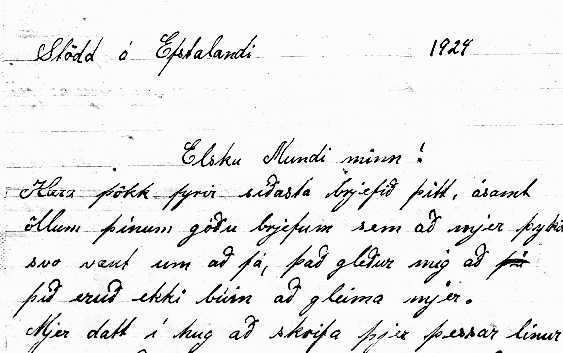 Stödd á Efstalandi 1924
Elsku Mundi minn!
Kæra þökk fyrir síðasta brjefið þitt, ásamt
öllum þínum góðu brjefum sem að mjer þykir
svo vænt um að fá, það gleður mig að
þið eruð ekki búin að gleima mjer.
Mjer datt í hug að skrifa þjer þessar línur